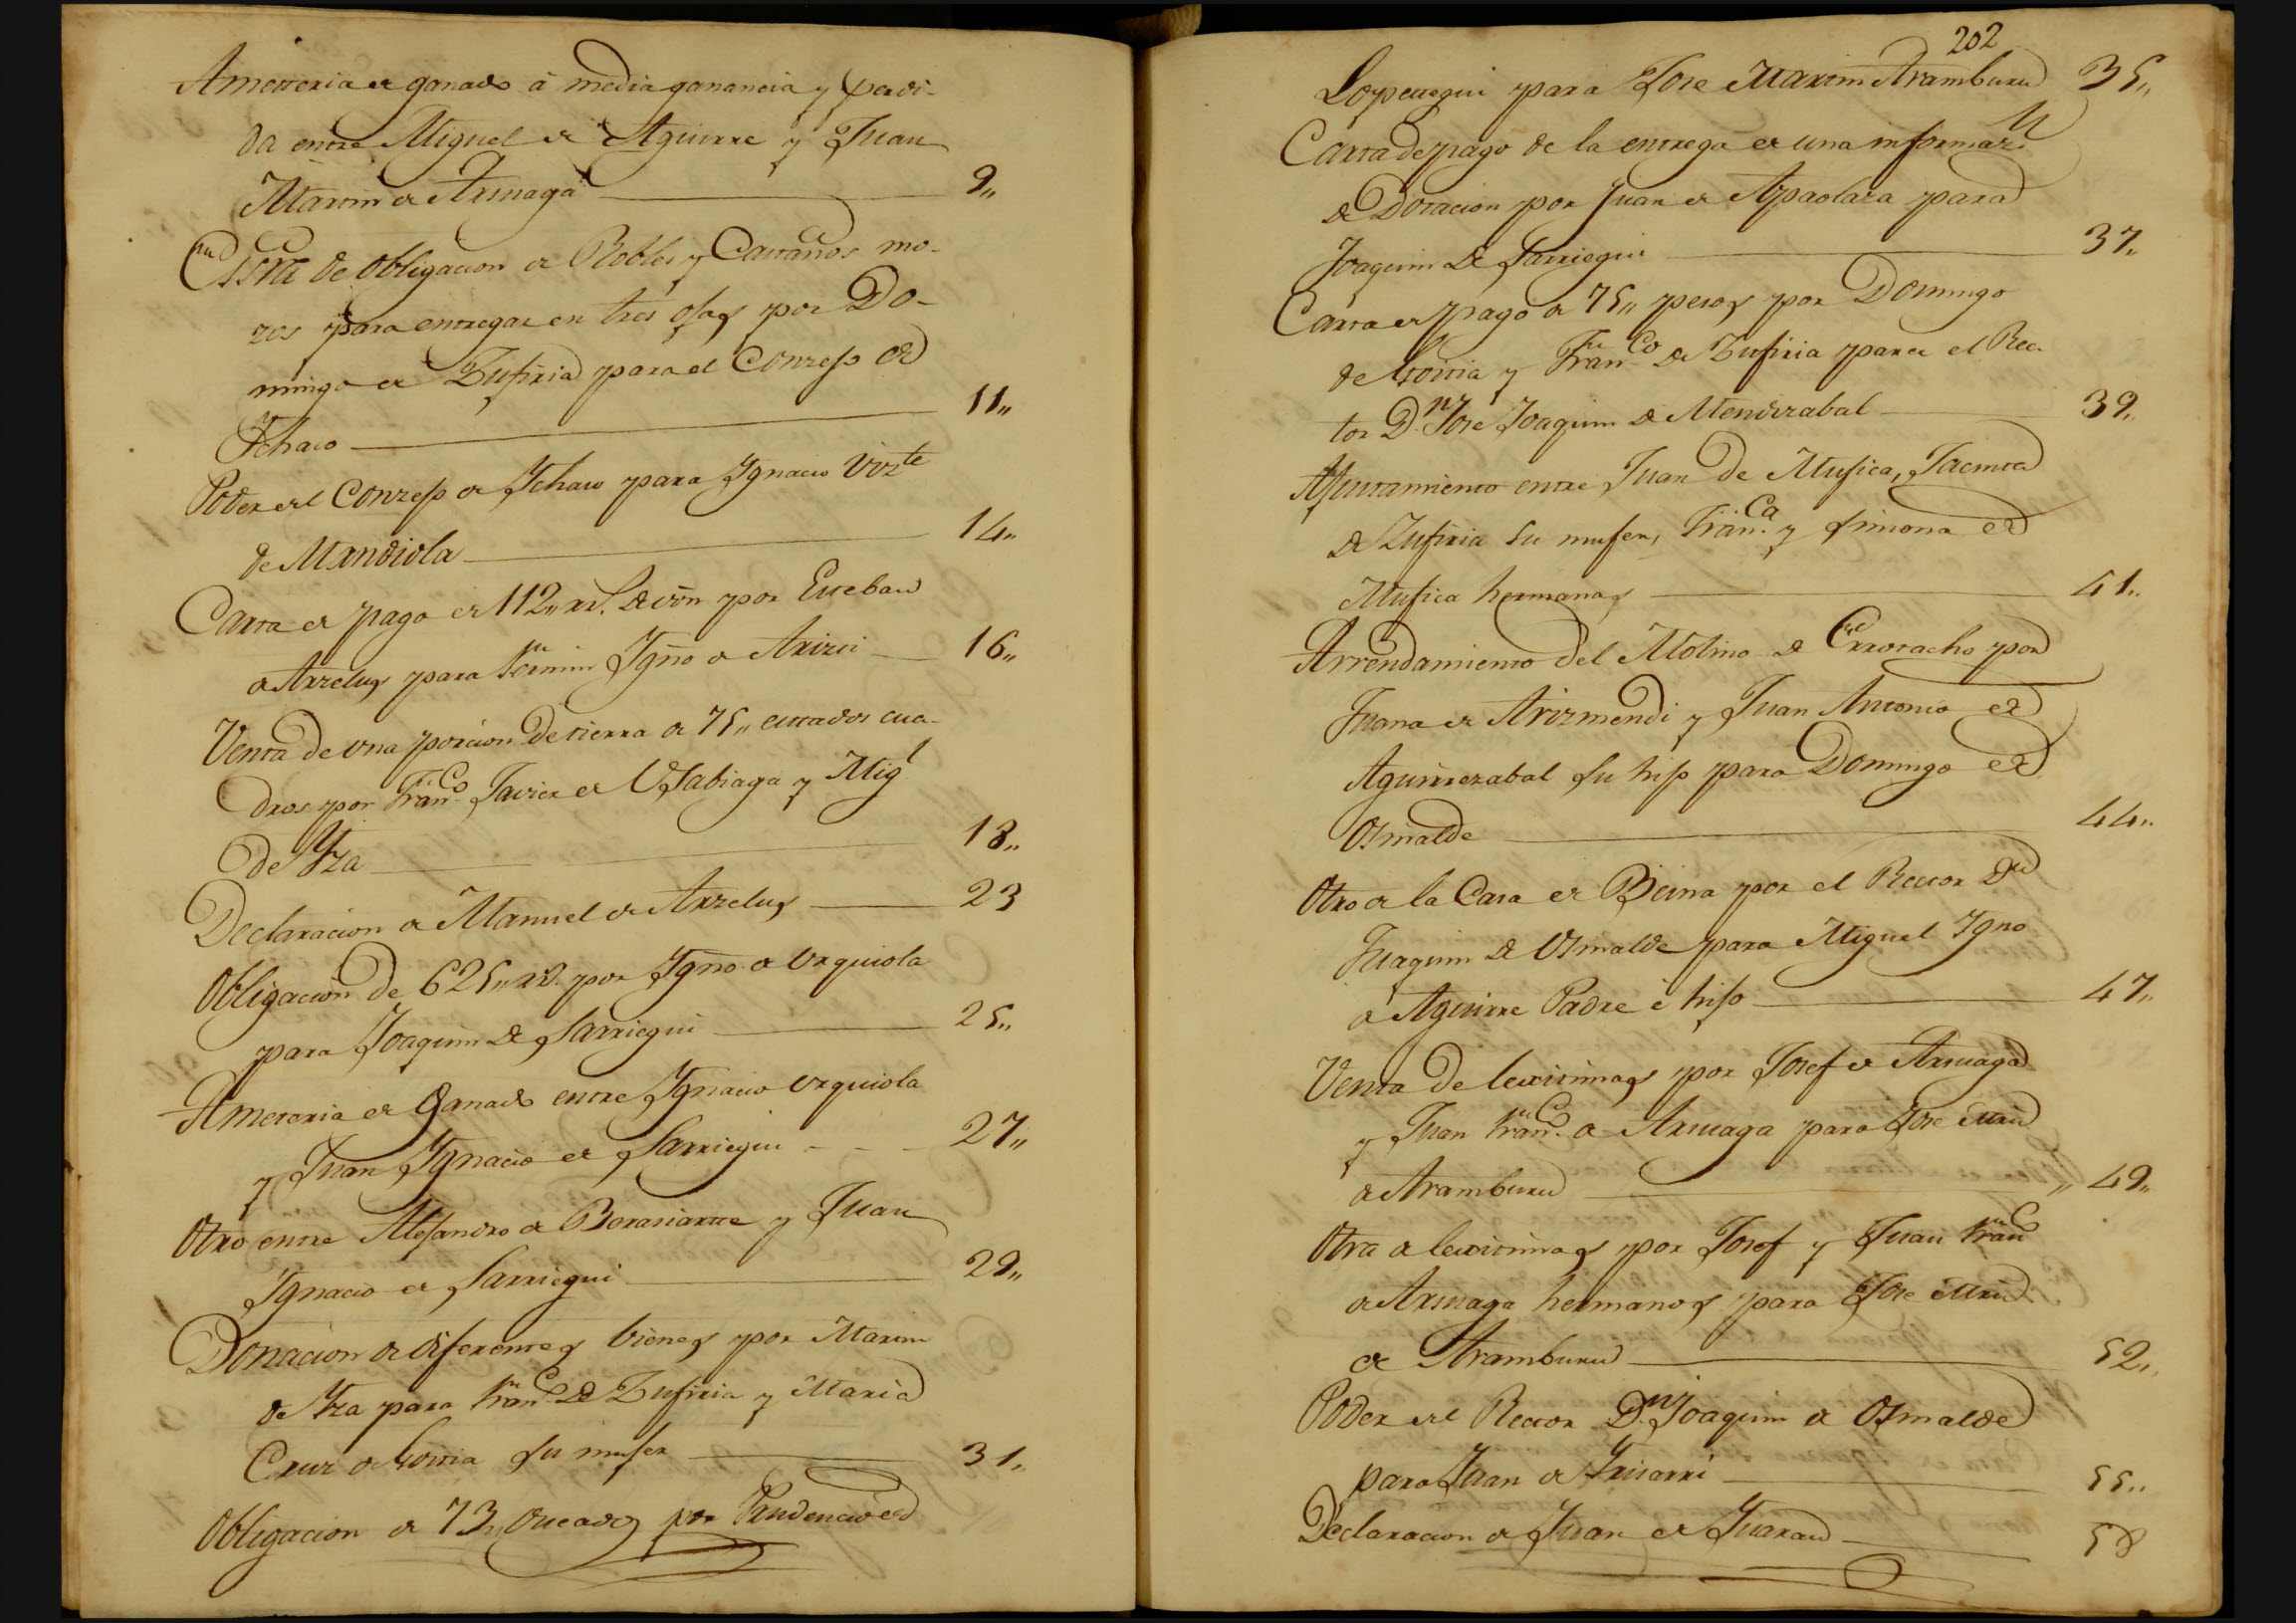 Ametteria de ganado á media ganancia y perdi-
da entre Miguel de Aguirre y Juan
Martin de Arsuaga 9,,
Essra de obligacion de Robles y Castaños mo-
zos para entregar en tres ojas por Do-
mingo de Zufiria para el Conzejo de
Ychaso 11,,
Poder del Conzejo de Ychaso para Ygnacio Vizte
de Mendiola 14,,
Carta de pago de 112,, rrs. de von por Esteban
de Arzelus para Fermin Ygño de Arizti 16,,
Venta de una porcion de tierra de 75,, estados cua-
dros por Franco Javier de Vsabiaga y Migl
de Yza 18,,
Declaracion de Manuel de Arzelus 23
Obligacion de 625,, rrs. por Ygño. de Vrquiola
para Joaquin de Sarriegui 25,,
Ameteria de Ganado entre Ygnacio Vrquiola
y Juan Ygnacio de Sarriegui 27,,
Otro entre Alejandro de Berasiartue y Juan
Ygnacio de Sarriegui 29,,
Donacion de diferentes bienes por Martin
de Yza para Franco de Zufiria y Maria
Cruz de Goitia su mujer 31,,
Obligacion de 73,, ducados por Prudencio de
202
Lopetegui para Jose Martin Aramburu 35,,
Carta de pago de la entrega de una informazn
de Dotacion por Juan de Apaolaza para
Joaquin de Sarriegui 37,,
Carta de pago de 75,, pesos por Domingo
de Goitia y Franco de Zufiria para el Rec-
tor Dn. Jose Joaquin de Mendizabal 39,,
Ajustamiento entre Juan de Mujica, Jacinta
de Zufiria su mujer, Franca. y Simona de
Mujica hermanas 41,,
Arrendamiento del Molino de Errotacho por
Juana de Arizmendi y Juan Antonio de
Aguirrezabal su hijo para Domingo de
Otsnalde 44,,
Otro de la Casa de Beina por el Rector Dn
Juaquin de Otsnalde para Miguel Ygno
de Aguirre Padre é hijo 47,,
Venta de lexitimas por Josef de Arsuaga
y Juan Franco. de Arsuaga para Jose Mrn
de Aramburu 49,,
Otra de lexitimas por Josef y Juan Franco
de Arsuaga hermanos para Jose Mrn
de Aramburu 52,,
Poder del Rector Dn. Joaquin de Otsnalde
para Juan de Yrisarri 55,,
Declaracion de Juan de 58